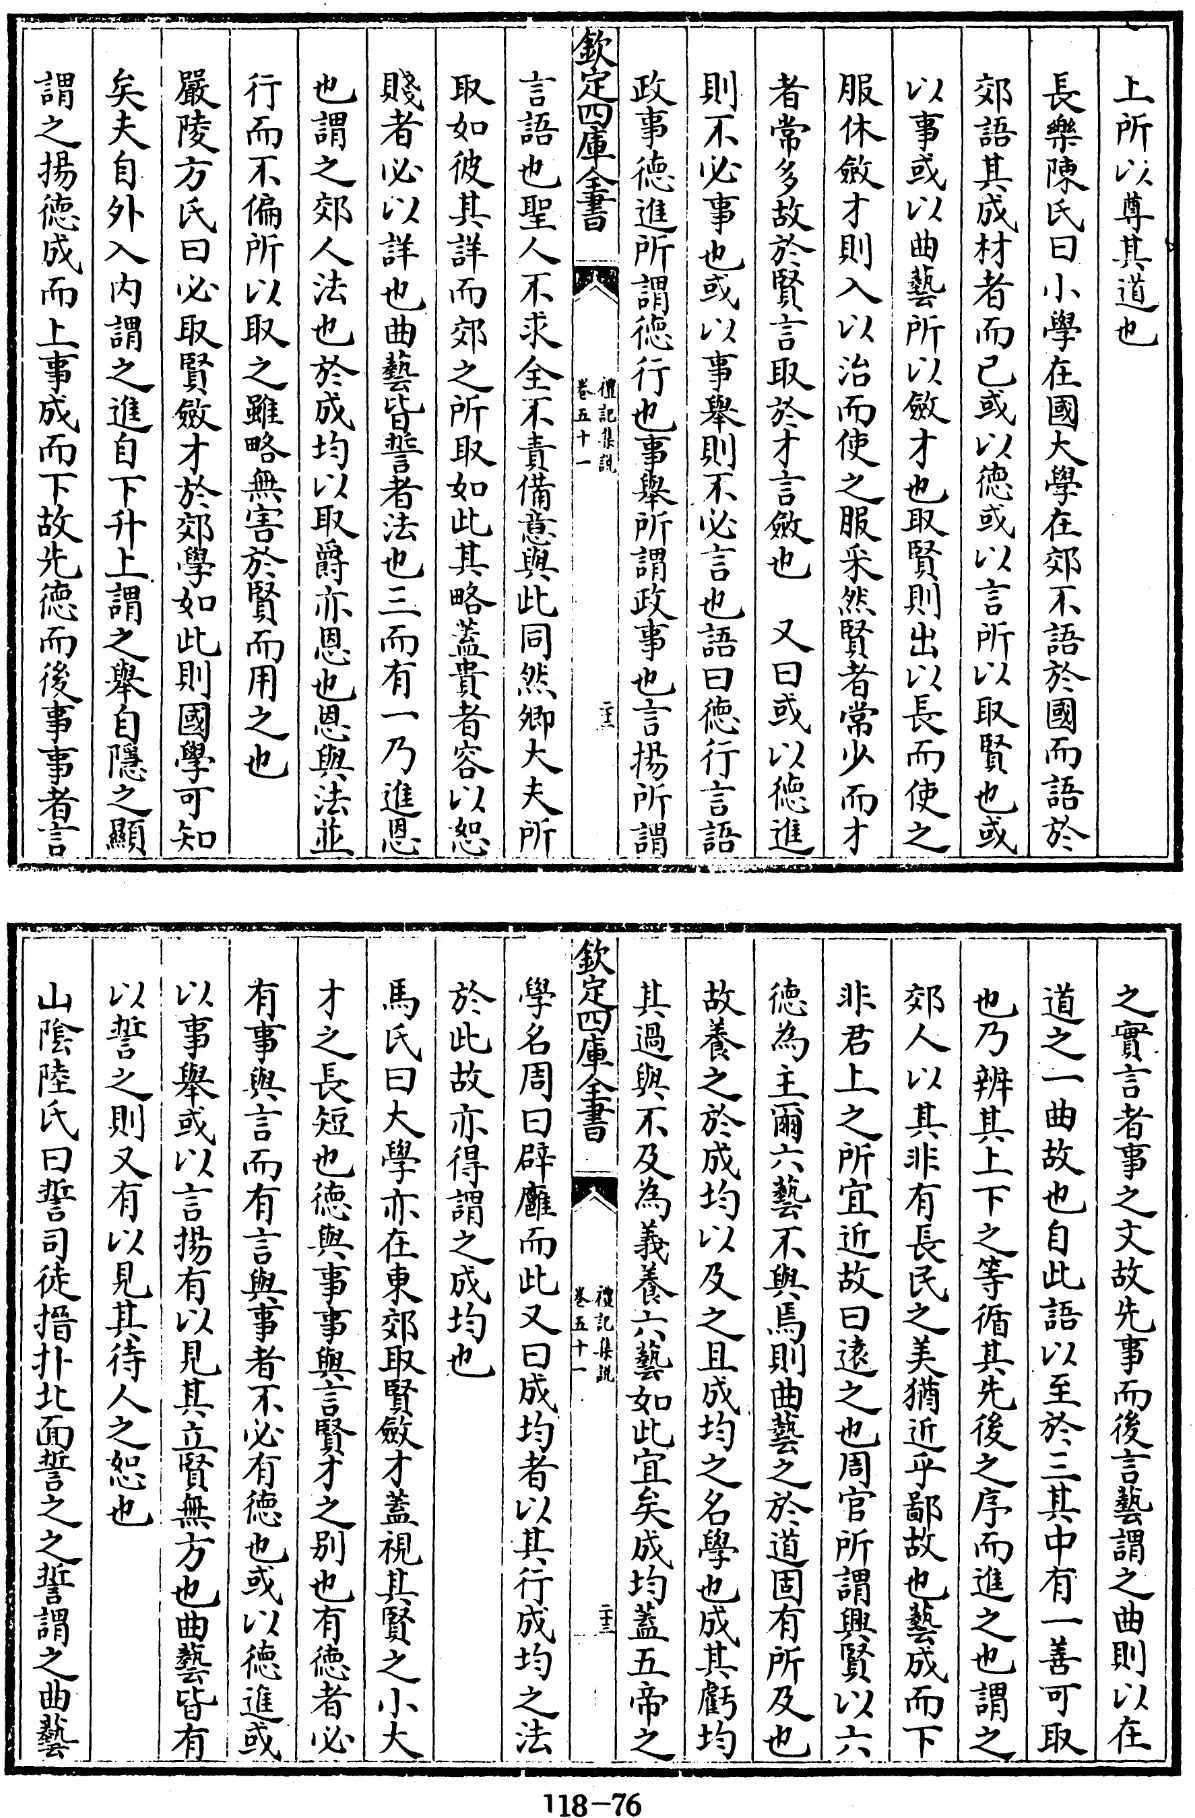 上所以尊其道也
長樂陳氏曰小學在國大學在郊不語於國而語於
郊語其成材者而已或以德或以言所以取賢也或
以事或以曲藝所以斂才也取賢則出以長而使之
服休斂才則入以治而使之服采然賢者常少而才
者常多故於賢言取於才言斂也　又曰或以德進
則不必事也或以事舉則不必言也語曰德行言語
政事德進所謂德行也事舉所謂政事也言揚所謂
欽定四庫全書
禮記集說
卷五十一
二十二
言語也聖人不求全不責備意與此同然卿大夫所
取如彼其詳而郊之所取如此其略蓋貴者容以恕
賤者必以詳也曲藝皆誓者法也三而有一乃進恩
也謂之郊人法也於成均以取爵亦恩也恩與法並
行而不偏所以取之雖略無害於賢而用之也
嚴陵方氏曰必取賢斂才於郊學如此則國學可知
矣夫自外入内謂之進自下升上謂之舉自隱之顯
謂之揚德成而上事成而下故先德而後事事者言
之實言者事之文故先事而後言藝謂之曲則以在
道之一曲故也自此語以至於三其中有一善可取
也乃辨其上下之等循其先後之序而進之也謂之
郊人以其非有長民之美猶近乎鄙故也藝成而下
非君上之所宜近故曰遠之也周官所謂興賢以六
德為主爾六藝不與焉則曲藝之於道固有所及也
故養之於成均以及之且成均之名學也成其虧均
其過與不及為義養六藝如此宜矣成均蓋五帝之
欽定四庫全書
禮記集說
卷五十一
二十三
學名周曰辟廱而此又曰成均者以其行成均之法
於此故亦得謂之成均也
馬氏曰大學亦在東郊取賢斂才蓋視其賢之小大
才之長短也德與事事與言賢才之别也有德者必
有事與言而有言與事者不必有德也或以德進或
以事舉或以言揚有以見其立賢無方也曲藝皆有
以誓之則又有以見其待人之恕也
山陰陸氏曰誓司徒搢扑北面誓之之誓謂之曲藝
118-76